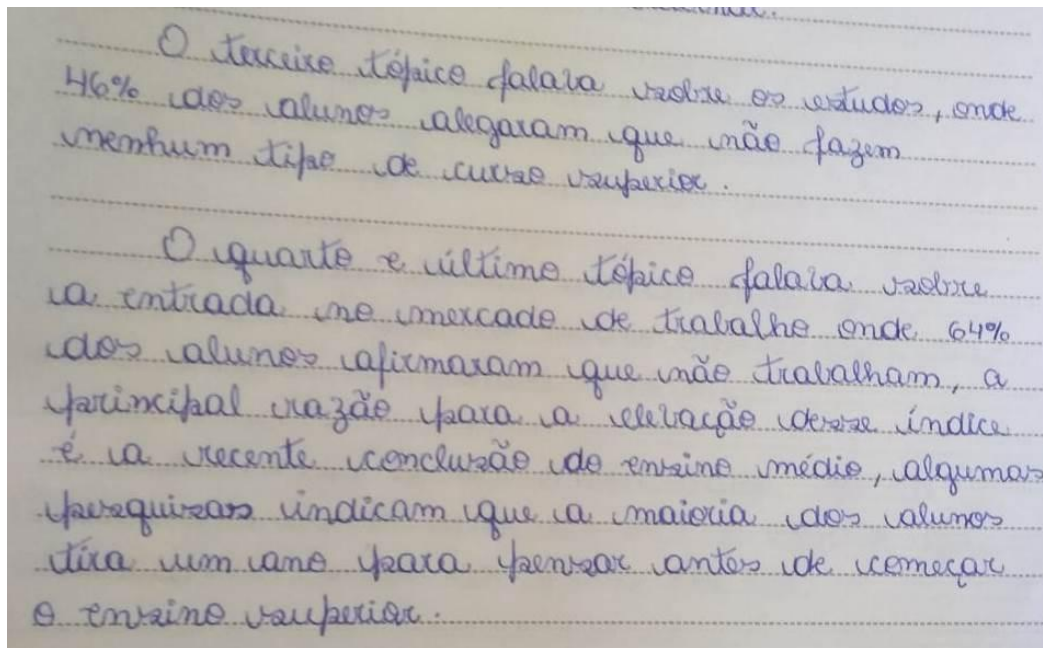 O terceiro tópico falava sobre os estudos, onde
46% dos alunos alegaram que não fazem
nenhum tipo de curso superior.
O quarto e último tópico falava sobre
a entrada no mercado de trabalho onde 64%
dos alunos afirmaram que não trabalham, a
principal razão para a elevação desse índice
é a recente conclusão do ensino médio, algumas
pesquisas indicam que a maioria dos alunos
tira um ano para pensar antes de começar
o ensino superior.